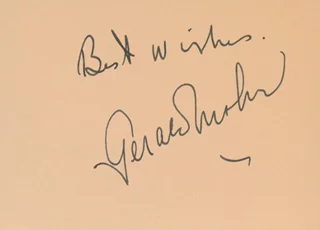 Best Wishes.
Gerald Mohr